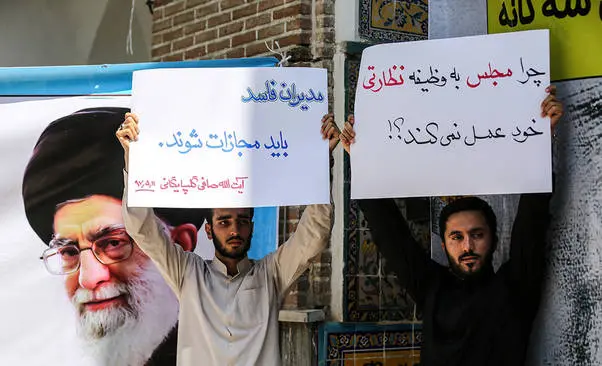 سه گانه
چرا مجلس به وظیفه نظارتی
خود عمل نمی‌کند؟!
مدیران فاسد
باید مجازات شوند.
آیت الله صافی گلپایگانی